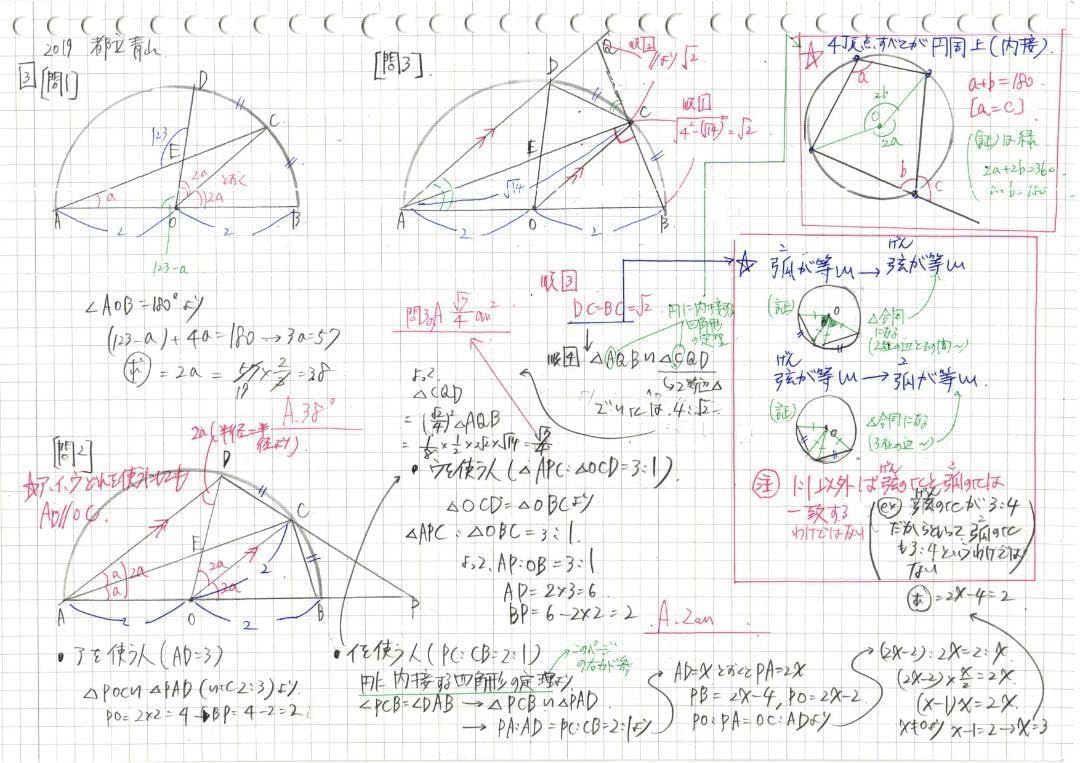 2019 都立青山
3 [問1]
D
C
E
123
a
2a とおく
2a
A
O
B
2
2
123-a
∠AOB=180°より
(123-a)+4a=180→3a=57
求 =2a=57×2/3=38
19
A.38°
[問3]
Q
D
C
E
A
O
B
√14
2
2
順2
//より√2
順1
√4²-(√14)²=√2
☆ 4頂点すべてが円周上(内接).
a
2b
O
2a
b
c
a+b=180.
[a=c]
(証)は緑
2a+2b=360
☆ 弧が等しい→弦が等しい
2
げん
(証)
O
△合同
になる
げん
2
弦が等しい→弧が等しい.
(証)
O
△合同になる
(3組の辺〜)
注 1:1以外は弦の比と弧の比は
げん
2
一致する
わけではない
ex 弦の比が3:4
げん
だからといって弧の比
2
も3:4というわけでは
ない
順3
DC=BC=√2
円に内接する
四角形
の定理
順4 △AQB∽△CQD
↳2等辺△
で∽比は.4:√2
問3の A √7/4 cm²
よって
△CQD
=(√2/4)²△AQB
=1/8×1/2×2√2×√14=√7/4
[問2]
2a(半径=半径より)
☆ア、イ、ウどれを使うにしても
AD//OC.
D
C
E
a
a
2a
2a
2a
2
A
O
B
P
2
2
・アを使う人(AD=3)
△POC∽△PAD(∽比2:3)より.
PO=2×2=4→BP=4-2=2
・ウを使う人(△APC:△OCD=3:1)
△OCD=△OBCより
△APC:△OBC=3:1.
よって.AP:OB=3:1.
AP=2×3=6.
BP=6-2×2=2
A.2cm
・イを使う人(PC:CB=2:1)
このページ
の右上が参
円に内接する四角形の定理より
∠PCB=∠DAB→△PCB∽△PAD
→PA:AD=PC:CB=2:1より
AD=xとおくとPA=2x
PB=2x-4, PO=2x-2
PO:PA=OC:ADより
(2x-2):2x=2:x.
(2x-2)×x/2=2x.
(x-1)x=2x.
x≠0より x-1=2→x=3
求=2x-4=2